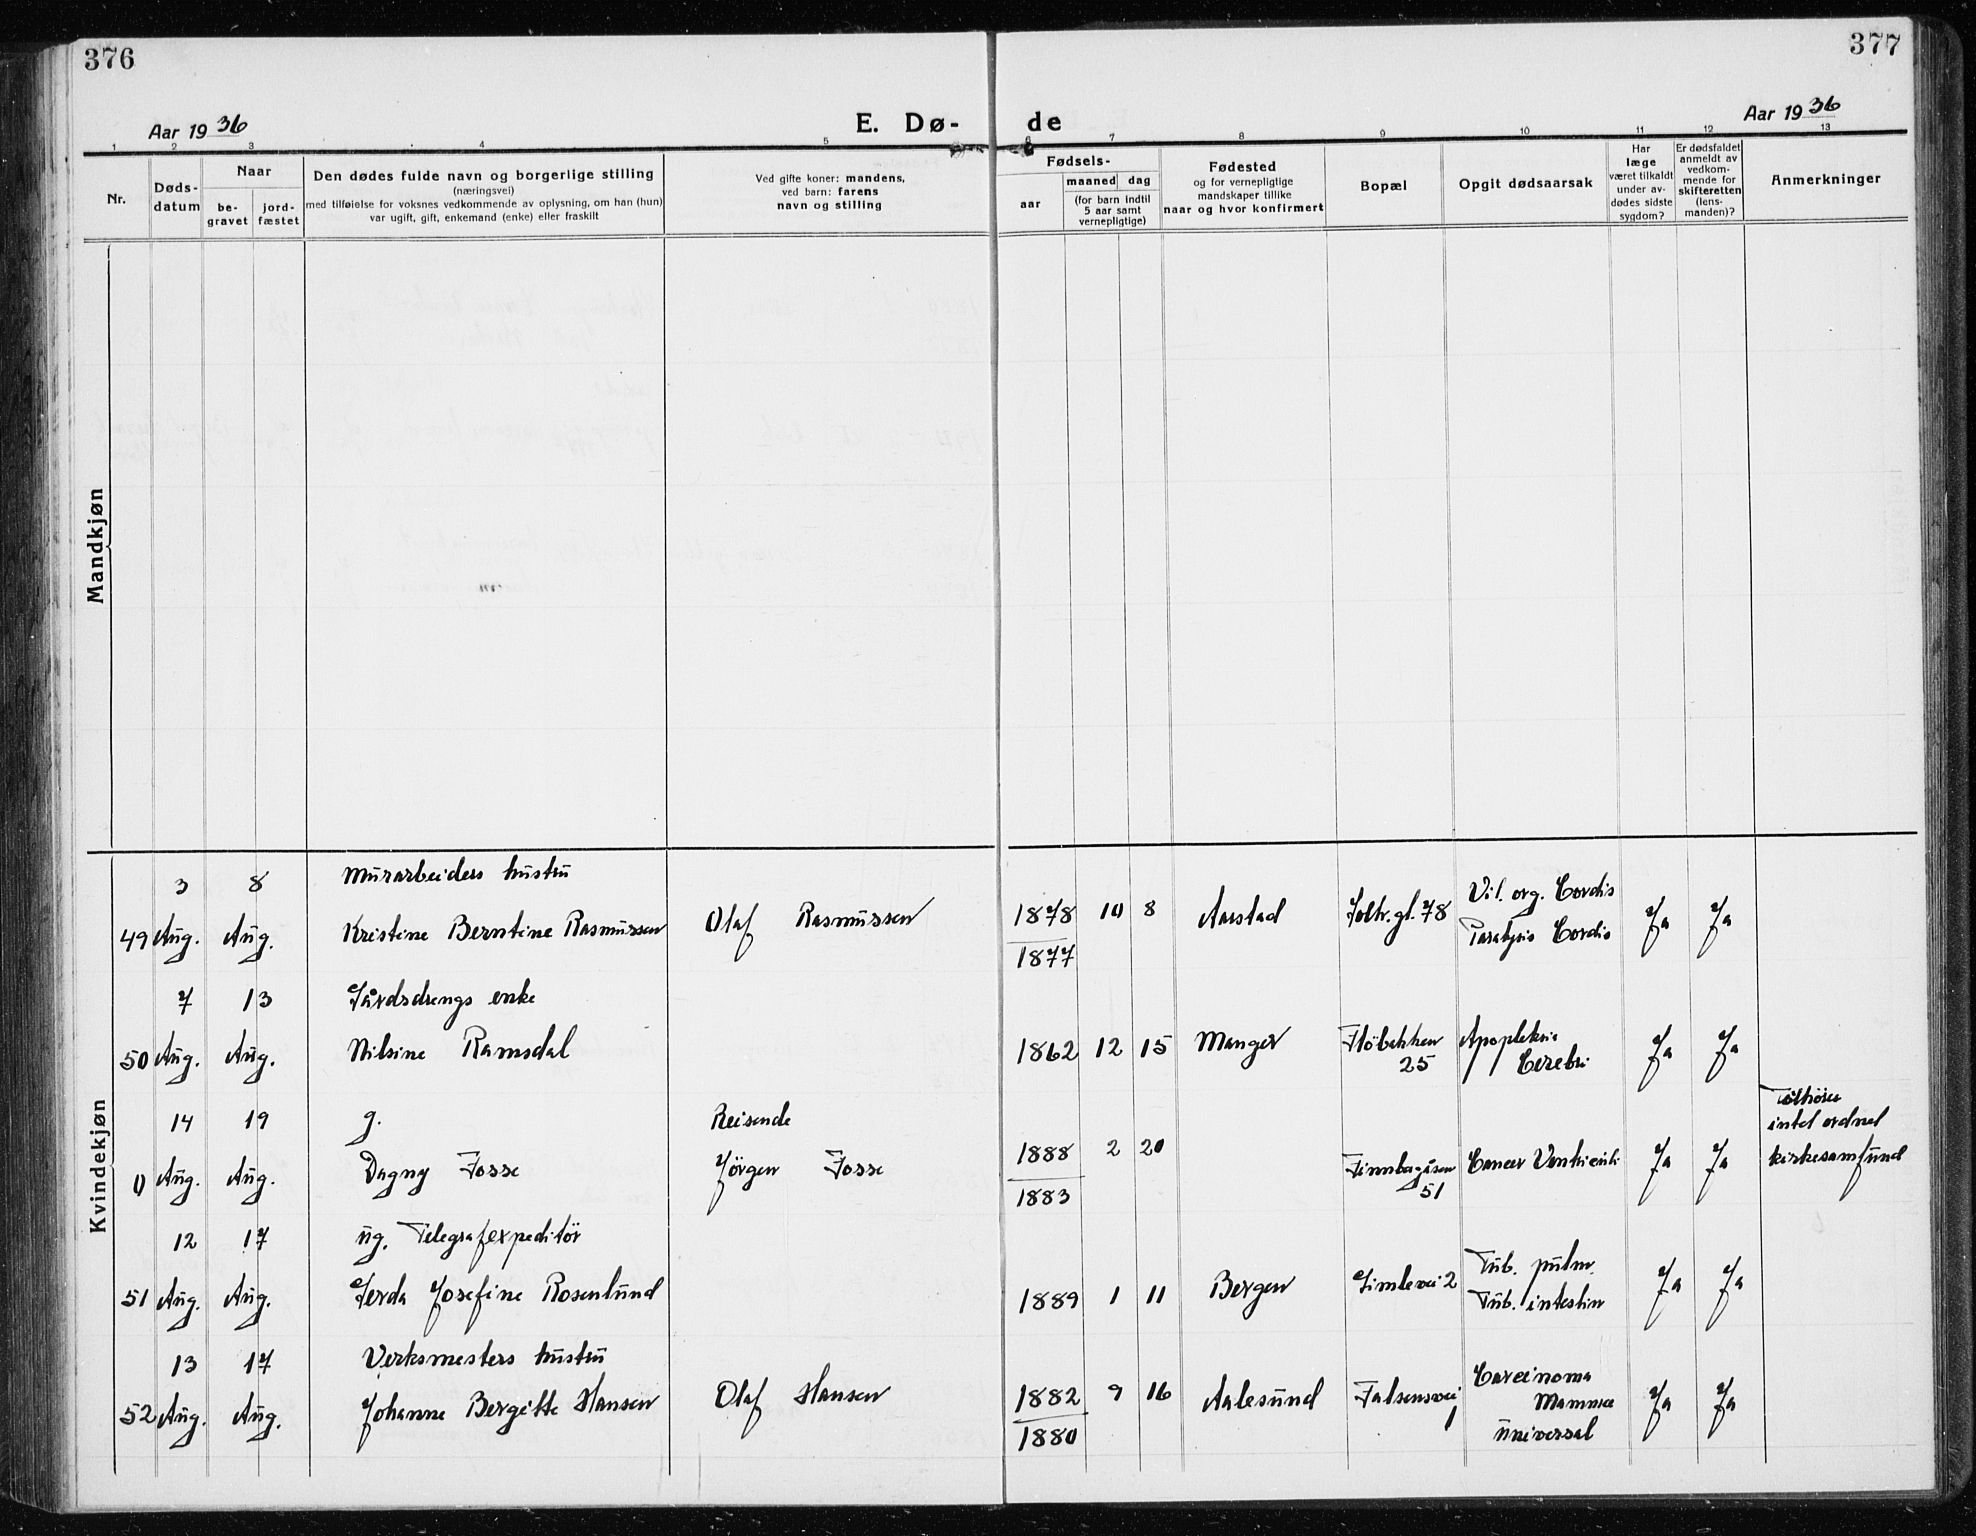 376
377
Aar 1936
E. Dø-
de
Aar 1936
1 2 3 4 5 6 7 8 9 10 11 12 13
Nr.
Døds-
datum
Naar
be-
gravet
jord-
fæstet
Den dødes fulde navn og borgerlige stilling
(næringsvei)
med tilføielse for voksnes vedkommende av oplysning, om han (hun)
var ugift, gift, enkemand (enke) eller fraskilt
Ved gifte koner: mandens,
ved barn: farens
navn og stilling
Fødsels-
aar
maaned dag
(for barn indtil
5 aar samt
vernepligtige)
Fødested
og for vernepligtige
mandskaper tillike
naar og hvor konfirmert
Bopæl
Opgit dødsaarsak
Har
læge
været tilkaldt
under av-
dødes sidste
sygdom?
Er dødsfaldet
anmeldt av
vedkom-
mende for
skifteretten
(lens-
manden)?
Anmerkninger
Mandkjøn
Kvindekjøn
3 8 Murarbeiders hustru Vit. org. Cordis
49 Aug. Aug. Kristine Berntine Rasmussen Olaf Rasmussen 1878 10 8 Aarstad 78 Paralysis Cordis Ja Ja
1877
7 13 Gårdsdrengs enke
50 Aug. Aug. Nilsine Ramsdal 1862 12 15 Manger Fløbakken Apopleksia Ja Ja
25 Cerebri
14 19 g. Reisende Tilhører
intet ordnet
0 Aug. Aug. Dagny Fosse Jörgen Fosse 1888 2 20 Finnbergåsen Cancer Ventriculi Ja Ja kirkesamfund
1883 51
12 17 ug. Telegrafexpeditör Tub. pulm.
51 Aug. Aug. Gerda Josefine Rosenlund 1889 1 11 Bergen Gimlevei 2 Tub. intestin Ja Ja
13 17 Verksmesters hustru Carcinoma
52 Aug. Aug. Johanne Bergitte Hansen Olaf Hansen 1882 9 16 Aalesund Falsensvei Mammae Ja Ja
1880 1 universal